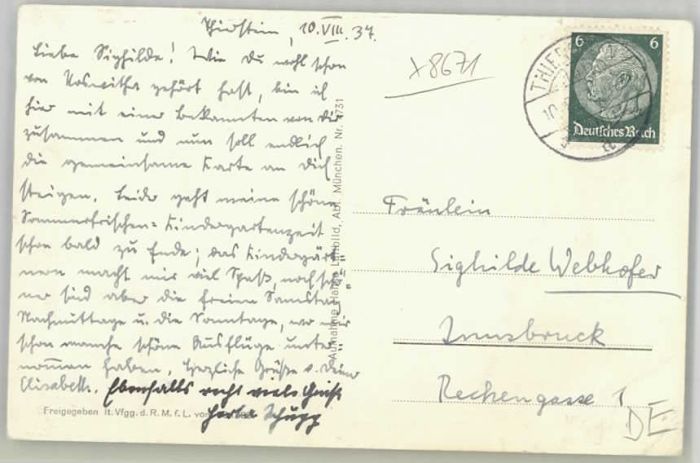 Thierstein, 10.VIII.37.
Liebe Sighilde! Wie Du wohl schon
von Roswitha gehört hast, bin ich
hier mit einer Bekannten von Dir
zusammen und nun soll endlich
die gemeinsame Karte an Dich
steigen. Leider geht meine schöne
Sommerfrischen-Kindergartenzeit
schon bald zu Ende; das Kindergärt-
nern macht mir viel Spaß, noch schö-
ner sind aber die freien Samstag
Nachmittage u. die Sonntage, wo wir
schon manche schöne Ausflüge unter-
nommen haben. Herzliche Grüße v. Deiner
Elisabeth. Ebenfalls recht viele Grüße
Herta Schupp
Freigegeben lt. Vfgg. d. R. M. f. L. vom
Abt. München. Nr. 4731
x8671
6 6
Deutsches Reich
THIERS
10.
Fräulein
Sighilde Webhofer
Innsbruck
Rechengasse 1
DE